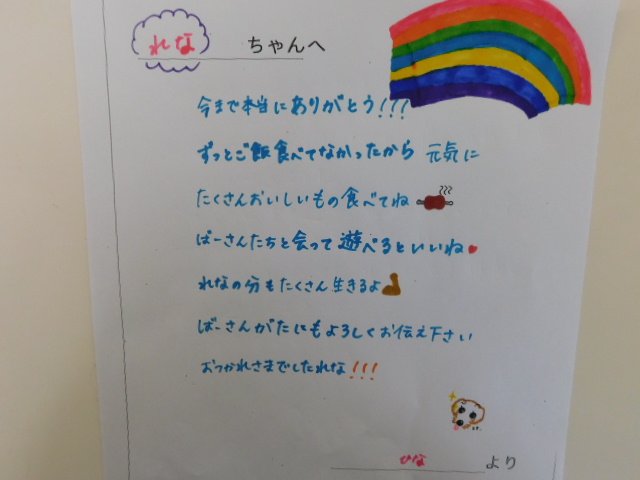 れな ちゃんへ
今まで本当にありがとう!!!
ずっとご飯食べてなかったから 元気に
たくさんおいしいもの食べてね
ばーさんたちと会って遊べるといいね
れなの分もたくさん生きるよ
ばーさんがたにもよろしくお伝え下さい
おつかれさまでしたれな!!!
ひな より